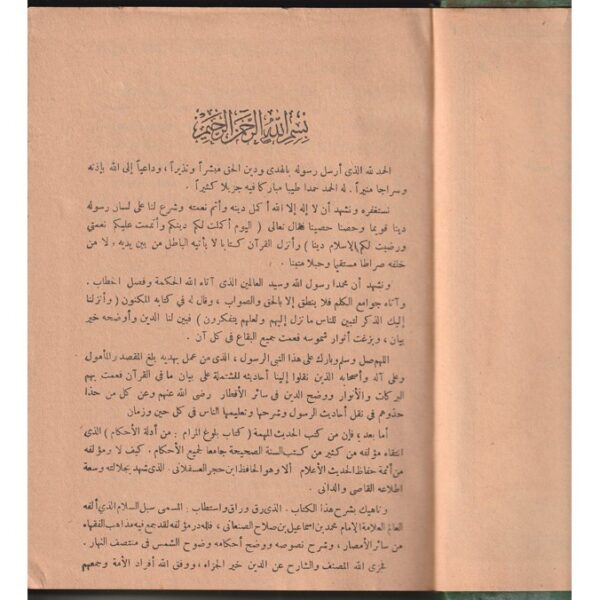 بسم الله الرحمن الرحيم
الحمد لله الذى أرسل رسوله بالهدى ودين الحق مبشراً ونذيراً ، وداعياً إلى الله بإذنه
وسراجا منيراً . له الحمد حمدا طيبا مباركا فيه جزيلا كثيراً .
نستغفره ونشهد أن لا إله إلا الله أكمل دينه وأتم نعمته وشرع لنا على لسان رسوله
دينا قويما وحصنا حصينا فقال تعالى ( اليوم أكملت لكم دينكم وأتممت عليكم نعمتي
ورضيت لكم الإسلام دينا ) وأنزل القرآن كتابا لا يأتيه الباطل من بين يديه ولا من
خلفه صراطا مستقيما وحبلا متينا .
ونشهد أن محمدا رسول الله وسيد العالمين الذى آتاه الله الحكمة وفصل الخطاب .
وآتاه جوامع الكلم فلا ينطق إلا بالحق والصواب ، وقال له فى كتابه المكنون ( وأنزلنا
إليك الذكر لتبين للناس ما نزل إليهم ولعلهم يتفكرون ) فبين لنا الدين وأوضحه خير
بيان ، وبزغت أنوار شموسه فعمت جميع البقاع فى كل آن .
اللهم صل وسلم وبارك على هذا النبى الرسول ، الذى من عمل بهديه بلغ المقصد والمأمول
وعلى آله وأصحابه الذين نقلوا إلينا أحاديثه المشتملة على بيان ما فى القرآن فعمت بهم
البركات والأنوار ووضح الدين فى سائر الأقطار رضى الله عنهم وعن كل من حذا
حذوهم فى نقل أحاديث الرسول وشرحها وتعليمها الناس فى كل حين وزمان
أما بعد ، فإن من كتب الحديث المهمة ( كتاب بلوغ المرام : من أدلة الأحكام ) الذى
انتقاه مؤلفه من كثير من كتب السنة الصحيحة جامعا لجميع الأحكام . كيف لا ومؤلفه
من أئمة حفاظ الحديث الأعلام ألا وهو الحافظ ابن حجر العسقلانى . الذى شهد بجلالته وسعة
اطلاعه القاصى والدانى .
وناهيك بشرح هذا الكتاب . الذى رق وراق واستطاب . المسمى سبل السلام الذي ألفه
العالم العلامة الإمام محمد بن اسماعيل بن صلاح الصنعانى ، فلله در مؤلفه لقد جمع فيه مذاهب الفقهاء
من سائر الأمصار ، وشرح نصوصه ووضح أحكامه وضوح الشمس فى منتصف النهار .
فجزى الله المصنف والشارح عن الدين خير الجزاء ، ووفق الله أفراد الأمة وجميعهم